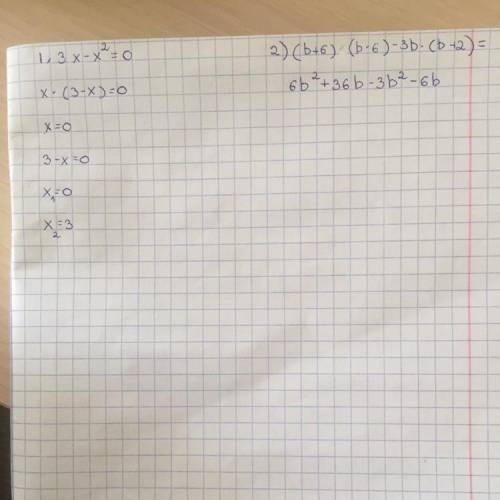 1, 3x-x²=0
x·(3-x)=0
x=0
3-x=0
x₁=0
x₂=3
2)(b+6)·(b·6)-3b·(b+2)=
6b²+36b-3b²-6b